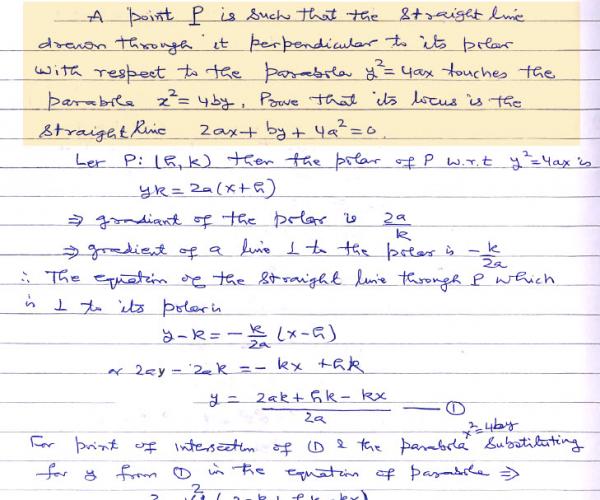 A point P is such that the straight line
drawn through it perpendicular to its polar
with respect to the parabola y²=4ax touches the
parabola x²=4by. Prove that its locus is the
straight line 2ax + by + 4a²=0.
Let P: (h, k) then the polar of P w.r.t y²=4ax is
yk = 2a(x+h)
⇒ gradiant of the polar is 2a/k
⇒ gradient of a line ⊥ to the polar is -k/2a
∴ The equation of the straight line through P which
is ⊥ to its polar is
y-k = -k/2a (x-h)
or 2ay - 2ak = -kx + hk
y = (2ak + hk - kx)/2a —— ①
x²=4by
For point of intersection of ① & the parabola substituting
for y from ① in the equation of parabola ⇒